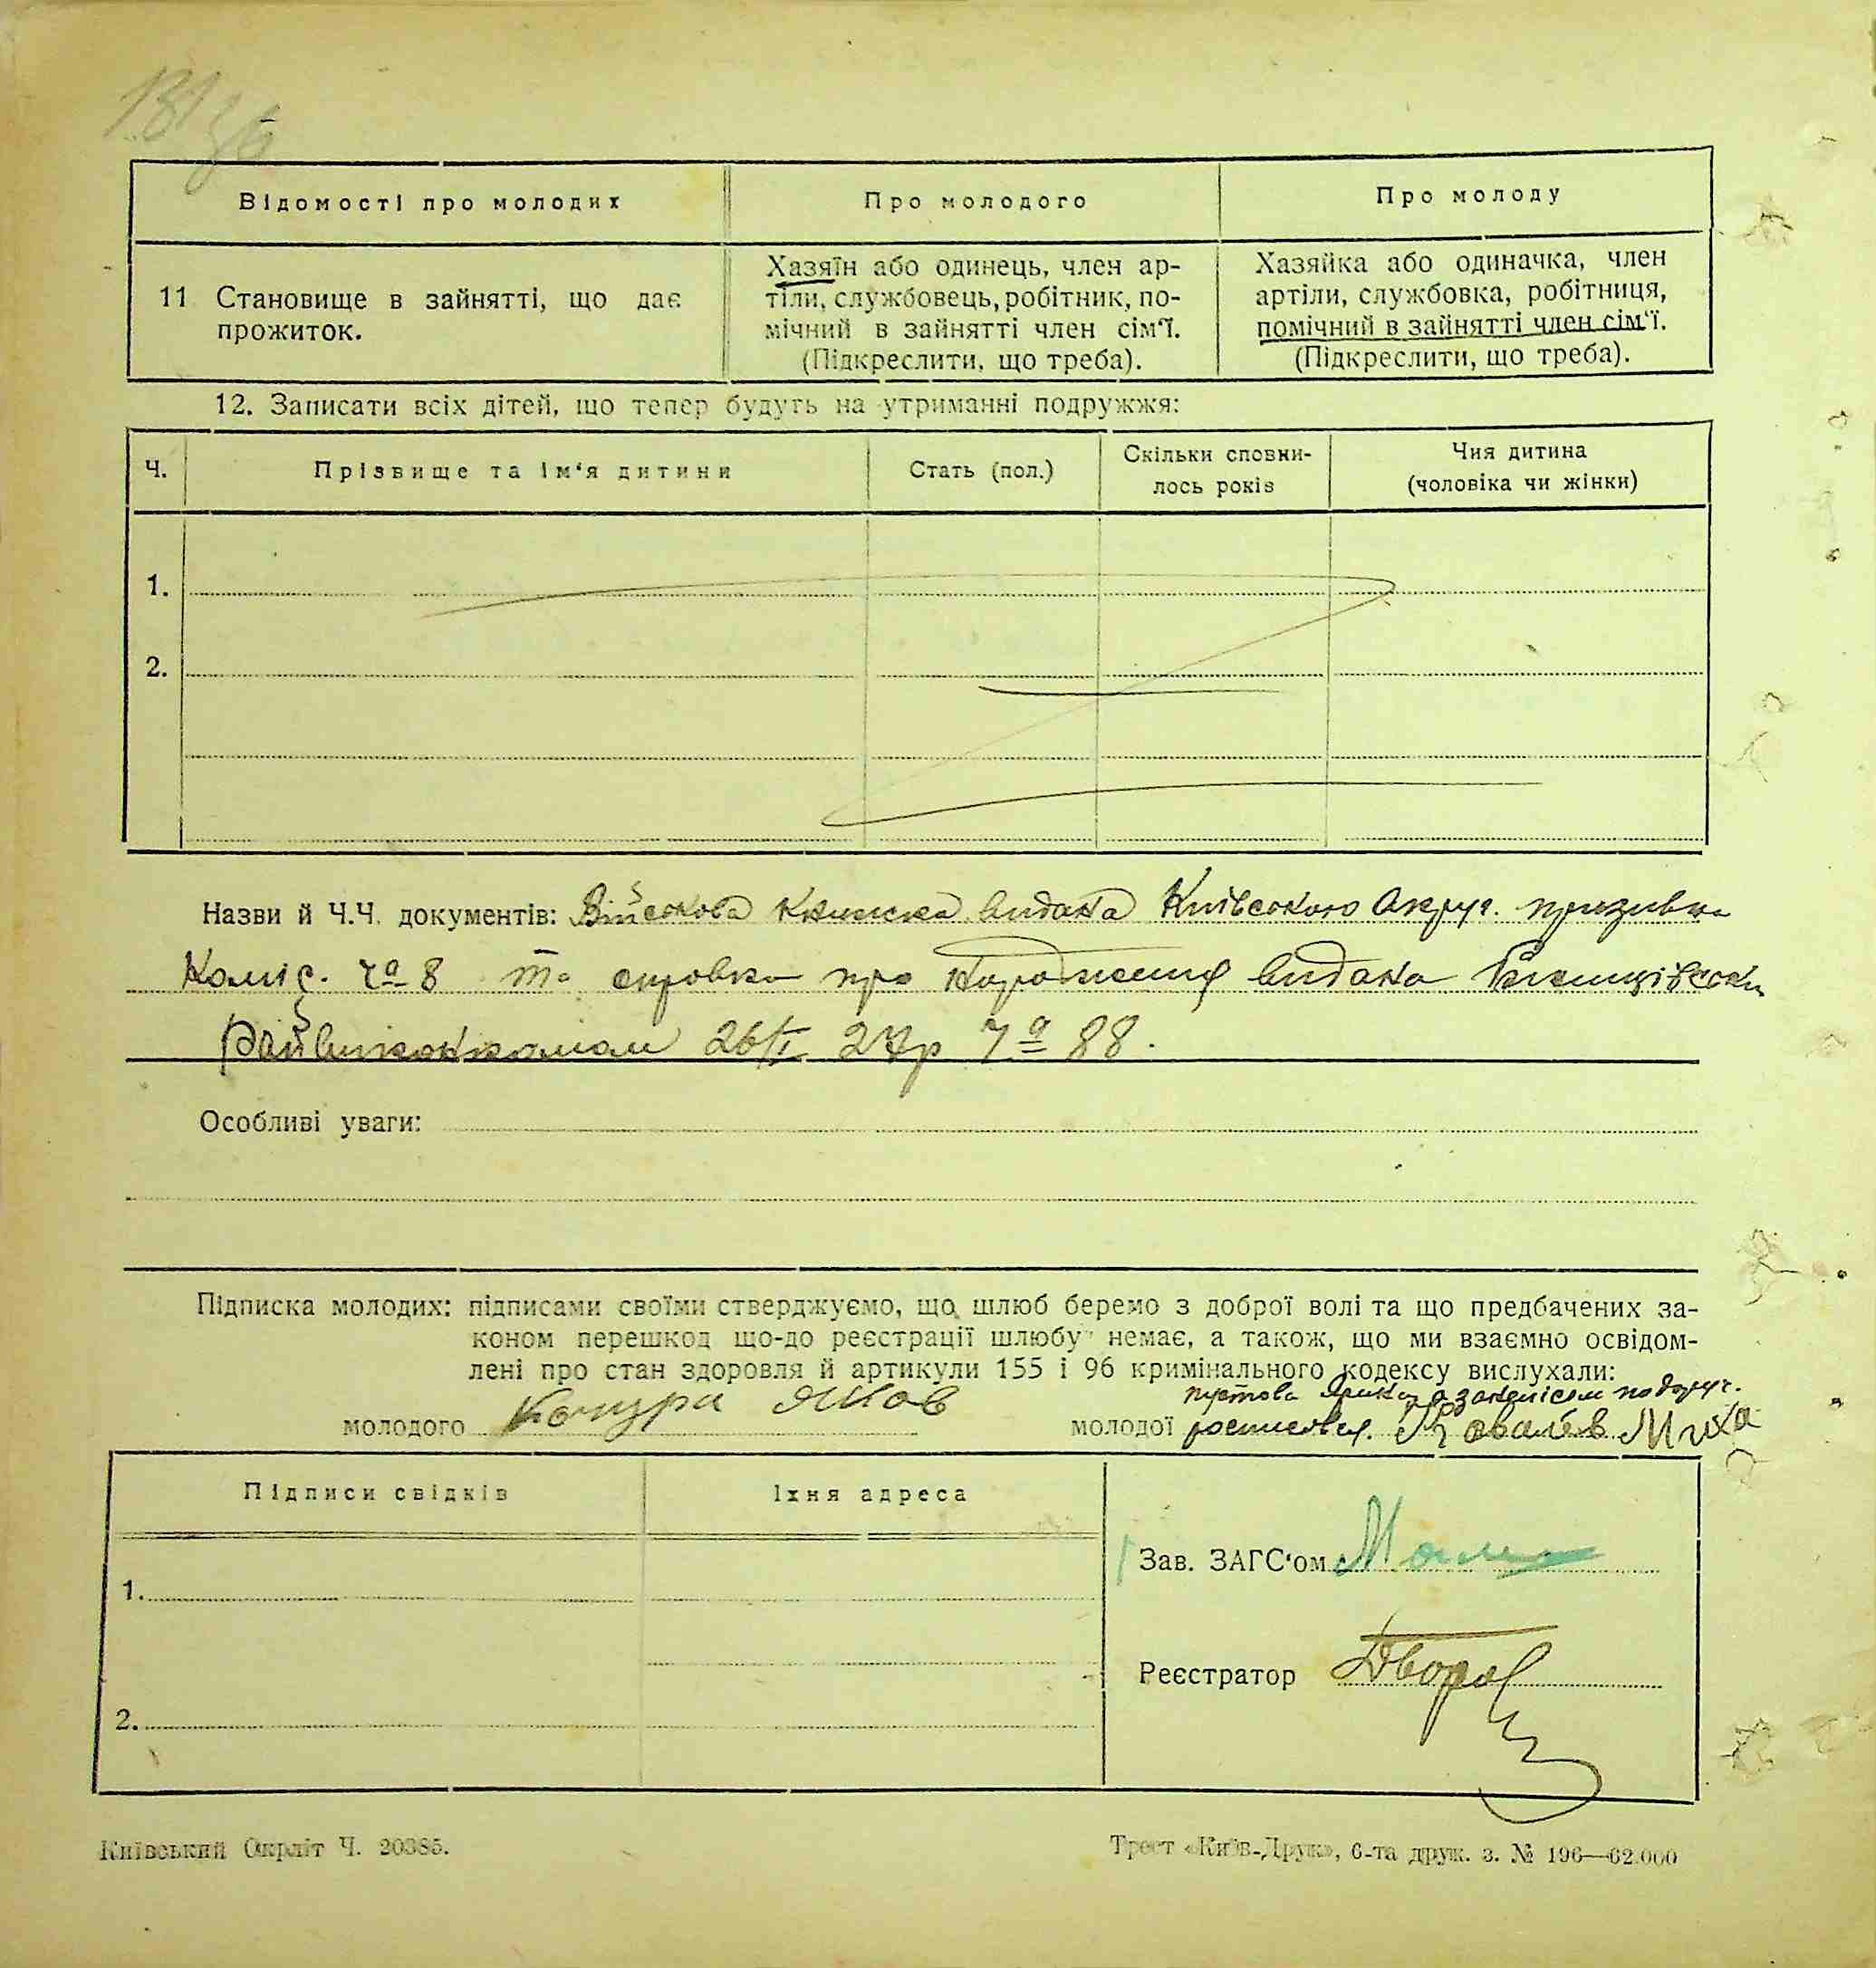 Відомості про молодих
Про молодого
Про молоду
11 Становище в зайнятті, що дає
прожиток.
Хазяїн або одинець, член ар-
тіли, службовець, робітник, по-
мічний в зайнятті член сім'ї.
(Підкреслити, що треба).
Хазяйка або одиначка, член
артіли, службовка, робітниця,
помічний в зайнятті член сім'ї.
(Підкреслити, що треба).
12. Записати всіх дітей, що тепер будуть на утриманні подружжя:
Ч.
Прізвище та ім'я дитини
Стать (пол.)
Скільки сповни-
лось років
Чия дитина
(чоловіка чи жінки)
1.
2.
Назви й Ч.Ч. документів: Військова книжка видана Київською Округ. призивна
Коміс. Ча 8 та справка про народження видана
Райвиконкомом 26/I 27р Ча 88.
Особливі уваги:
Підписка молодих: підписами своїми стверджуємо, що шлюб беремо з доброї волі та що предбачених за-
коном перешкод що-до реєстрації шлюбу немає, а також, що ми взаємно освідом-
лені про стан здоровля й артикули 155 і 96 кримінального кодексу вислухали:
молодого Кочура Яков
молодої Ковалев Миха
Підписи свідків
Їхня адреса
1.
2.
Зав. ЗАГС'ом
Реєстратор
Київський Окрліт Ч. 20385.
Трест «Київ-Друк», 6-та друк. з. № 196—62.000